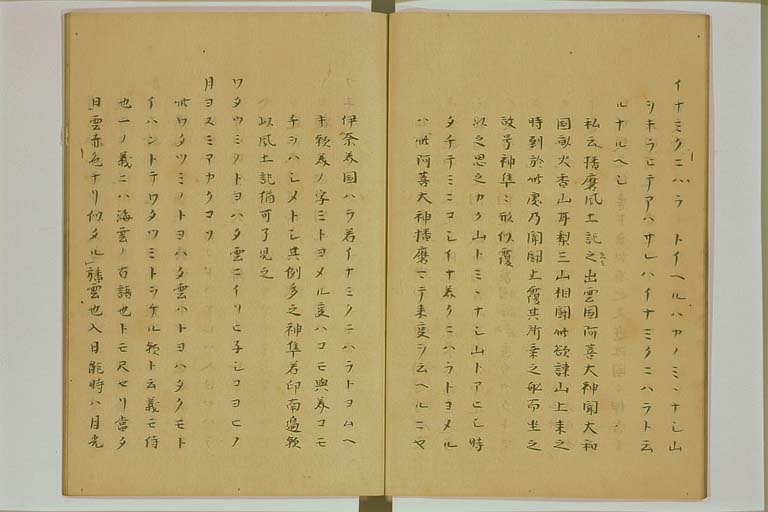 イナミクニハラ トイヘルハカノミミナシ山
シキラヒテアハサレハイナミクニハラト云
ルナルヘシ
私云播磨風土記之出雲国阿菩大神聞大和
国畝火香山耳梨三山相闘此欲諫山上来之
時到於此處乃聞闘止覆其所乗之舩而坐之
故号神隼〻形似覆
以之思之カク山トミミナシ山トアヒシ時
タチテミニコシイナ美クニハラトヨメル
ハ此阿菩大神播磨マテ来変ヲ云ヘルニヤ
伊奈美国ハラ若イナミクニハラトヨムヘ
キ歟美ノ字ミトヨメル変ハコモ與美コモ
チシハシメトシ其例多之神隼若印南過歟
以風土記猶可了見之
ワタツミノトヨハタ雲ニイリヒ子シコヨヒノ
月ヨスミアカクコソ
此ワタツミノトヨハタ雲ハトヨハタクモト
イハントテワタツミトヲケル歟ト云義モ侍
也一ノ義ニハ海雲ノ古語也トモ尺セリ當タ
日雲赤色ナリ似タル幡雲也入日能時ハ月光